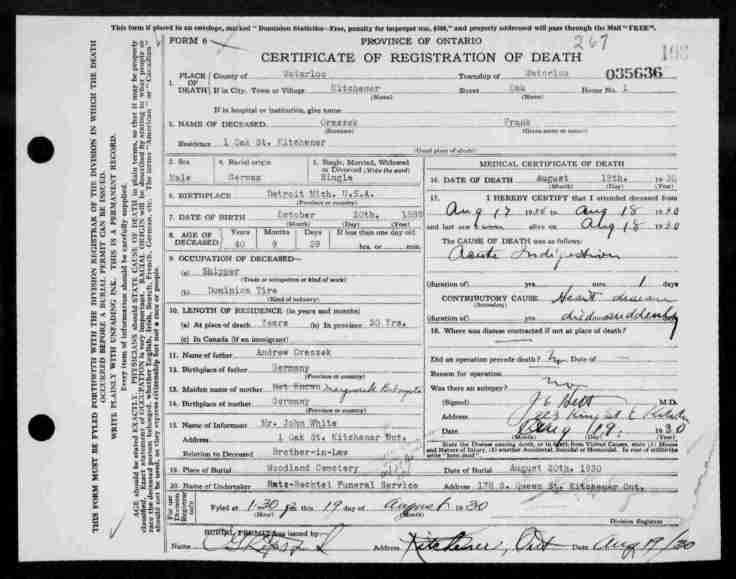 This form if placed in an envelope, marked "Dominion Statistics—Free, penalty for improper use, $300," and properly addressed will pass through the Mail "FREE".
THIS FORM MUST BE FYLED FORTHWITH WITH THE DIVISION REGISTRAR OF THE DIVISION IN WHICH THE DEATH
OCCURRED BEFORE A BURIAL PERMIT CAN BE ISSUED.
WRITE PLAINLY WITH UNFADING INK. THIS IS A PERMANENT RECORD.
Every item of information should be carefully supplied.
AGE should be stated EXACTLY. PHYSICIANS should STATE CAUSE OF DEATH in plain terms, so that it may be properly
FORM 6
PROVINCE OF ONTARIO
267
CERTIFICATE OF REGISTRATION OF DEATH
035636
1. PLACE OF DEATH County of Waterloo Township of Waterloo
If in City, Town or Village Kitchener Street Oak House No. 1
(Name) (Name)
If in hospital or institution, give name
2. NAME OF DECEASED. Oraszek Frank
(Surname) (Given name or names)
Residence 1 Oak St. Kitchener
(Usual place of abode)
3. Sex 4. Racial origin 5. Single, Married, Widowed or Divorced (Write the word)
Male German Single
6. BIRTHPLACE Detroit Mich. U.S.A.
(Province or country)
7. DATE OF BIRTH October 20th.
(Month) (Day) (Year)
8. AGE OF DECEASED Years Months Days If less than one day old
40 9 29 hrs. or min.
9. OCCUPATION OF DECEASED—
(a) Shipper
(Trade or occupation or kind of work)
(b) Dominion Tire
(Kind of industry)
10. LENGTH OF RESIDENCE (in years and months)
(a) At place of death Years (b) In province 20 Yrs.
(c) In Canada (if an immigrant)
11. Name of father Andrew Oraszek
12. Birthplace of father Germany
(Province or country)
13. Maiden name of mother Not Known
14. Birthplace of mother Germany
(Province or country)
15. Name of Informant Mr. John White
Address 1 Oak St. Kitchener Ont.
Relation to Deceased Brother-in-Law
MEDICAL CERTIFICATE OF DEATH
16. DATE OF DEATH August 18th. 1930
(Month) (Day) (Year)
17. I HEREBY CERTIFY that I attended deceased from
Aug 17 1930 to Aug 18 1930
and last saw alive on Aug 18 1930
The CAUSE OF DEATH was as follows:
Acute Indigestion
(duration of) yrs. mos. 1 days
CONTRIBUTORY CAUSE Heart disease
(Secondary)
(duration of) died suddenly
18. Where was disease contracted if not at place of death?
Did an operation precede death? No Date of —
Reason for operation
Was there an autopsy? no
(Signed) M.D.
Address
Date Aug 19. 1930
(Month) (Day) (Year)
State the Disease causing death, or in death from Violent causes, state (1) Means and Nature of Injury, (2) whether Accidental, Suicidal or Homicidal.
19. Place of Burial Woodland Cemetery Date of Burial August 20th. 1930
20. Name of Undertaker Ratz-Bechtel Funeral Service Address Queen St. Kitchener Ont.
For use of Division Registrar only
Fyled at 1:30 this 19 day of August 1930
Division Registrar
BURIAL PERMIT was issued by—
Name Address Kitchener, Ont Date Aug 19/30